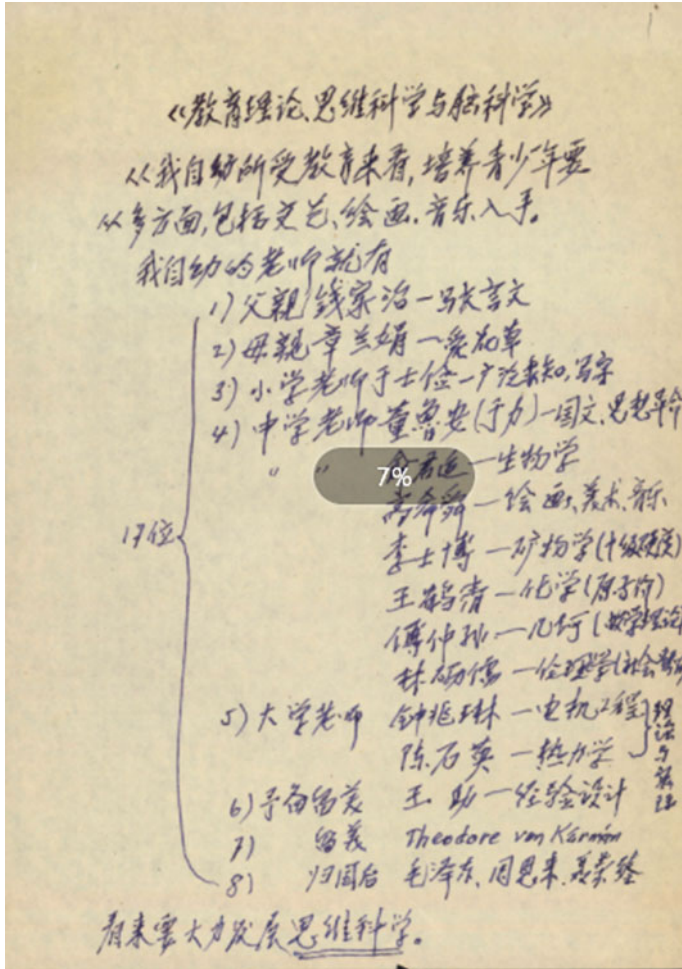 《教育理论、思维科学与脑科学》
从我自幼所受教育来看,培养青少年要
从多方面,包括文艺、绘画、音乐入手。
我自幼的老师就有
1) 父親 钱家治—写文言文
2) 母親 章兰娟—爱花草
3) 小学老师于士俭—广泛求知,写字
4) 中学老师 董鲁安(于力)—国文、思想革命
" " 俞君适—生物学
7%
高希舜—绘画、美术、音乐
李士博—矿物学(十级硬度)
17位
王鹤清—化学(原子价)
傅仲孙—几何(数学理论
林砺儒—伦理学(社会
5) 大学老师 钟兆琳—电机工程
陈石英—热力学
理论与实际
6) 予备留美 王助—经验设计
7) 留美 Theodore von Kármán
8) 归国后 毛泽东、周恩来、聂荣臻
看来要大力发展思维科学。